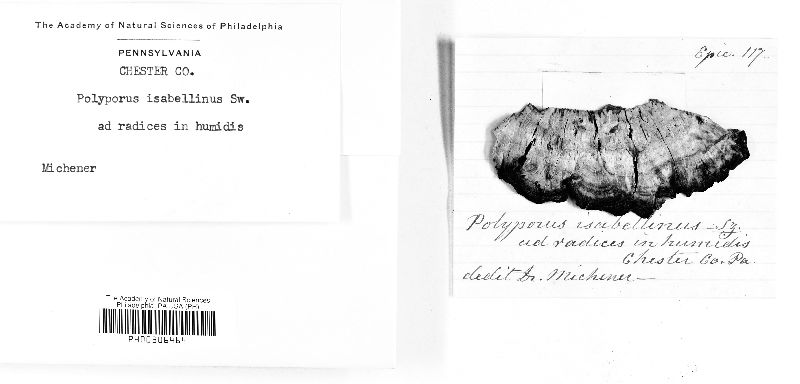 The Academy of Natural Sciences of Philadelphia
PENNSYLVANIA
CHESTER CO.
Polyporus isabellinus Sw.
ad radices in humidis
Michener
The Academy of Natural Sciences
Philadelphia, PA, USA (PH)
Epic. 117.
Polyporus isabellinus - Sz.
ad radices in humidis
Chester Co. Pa.
dedit Dr. Michener —